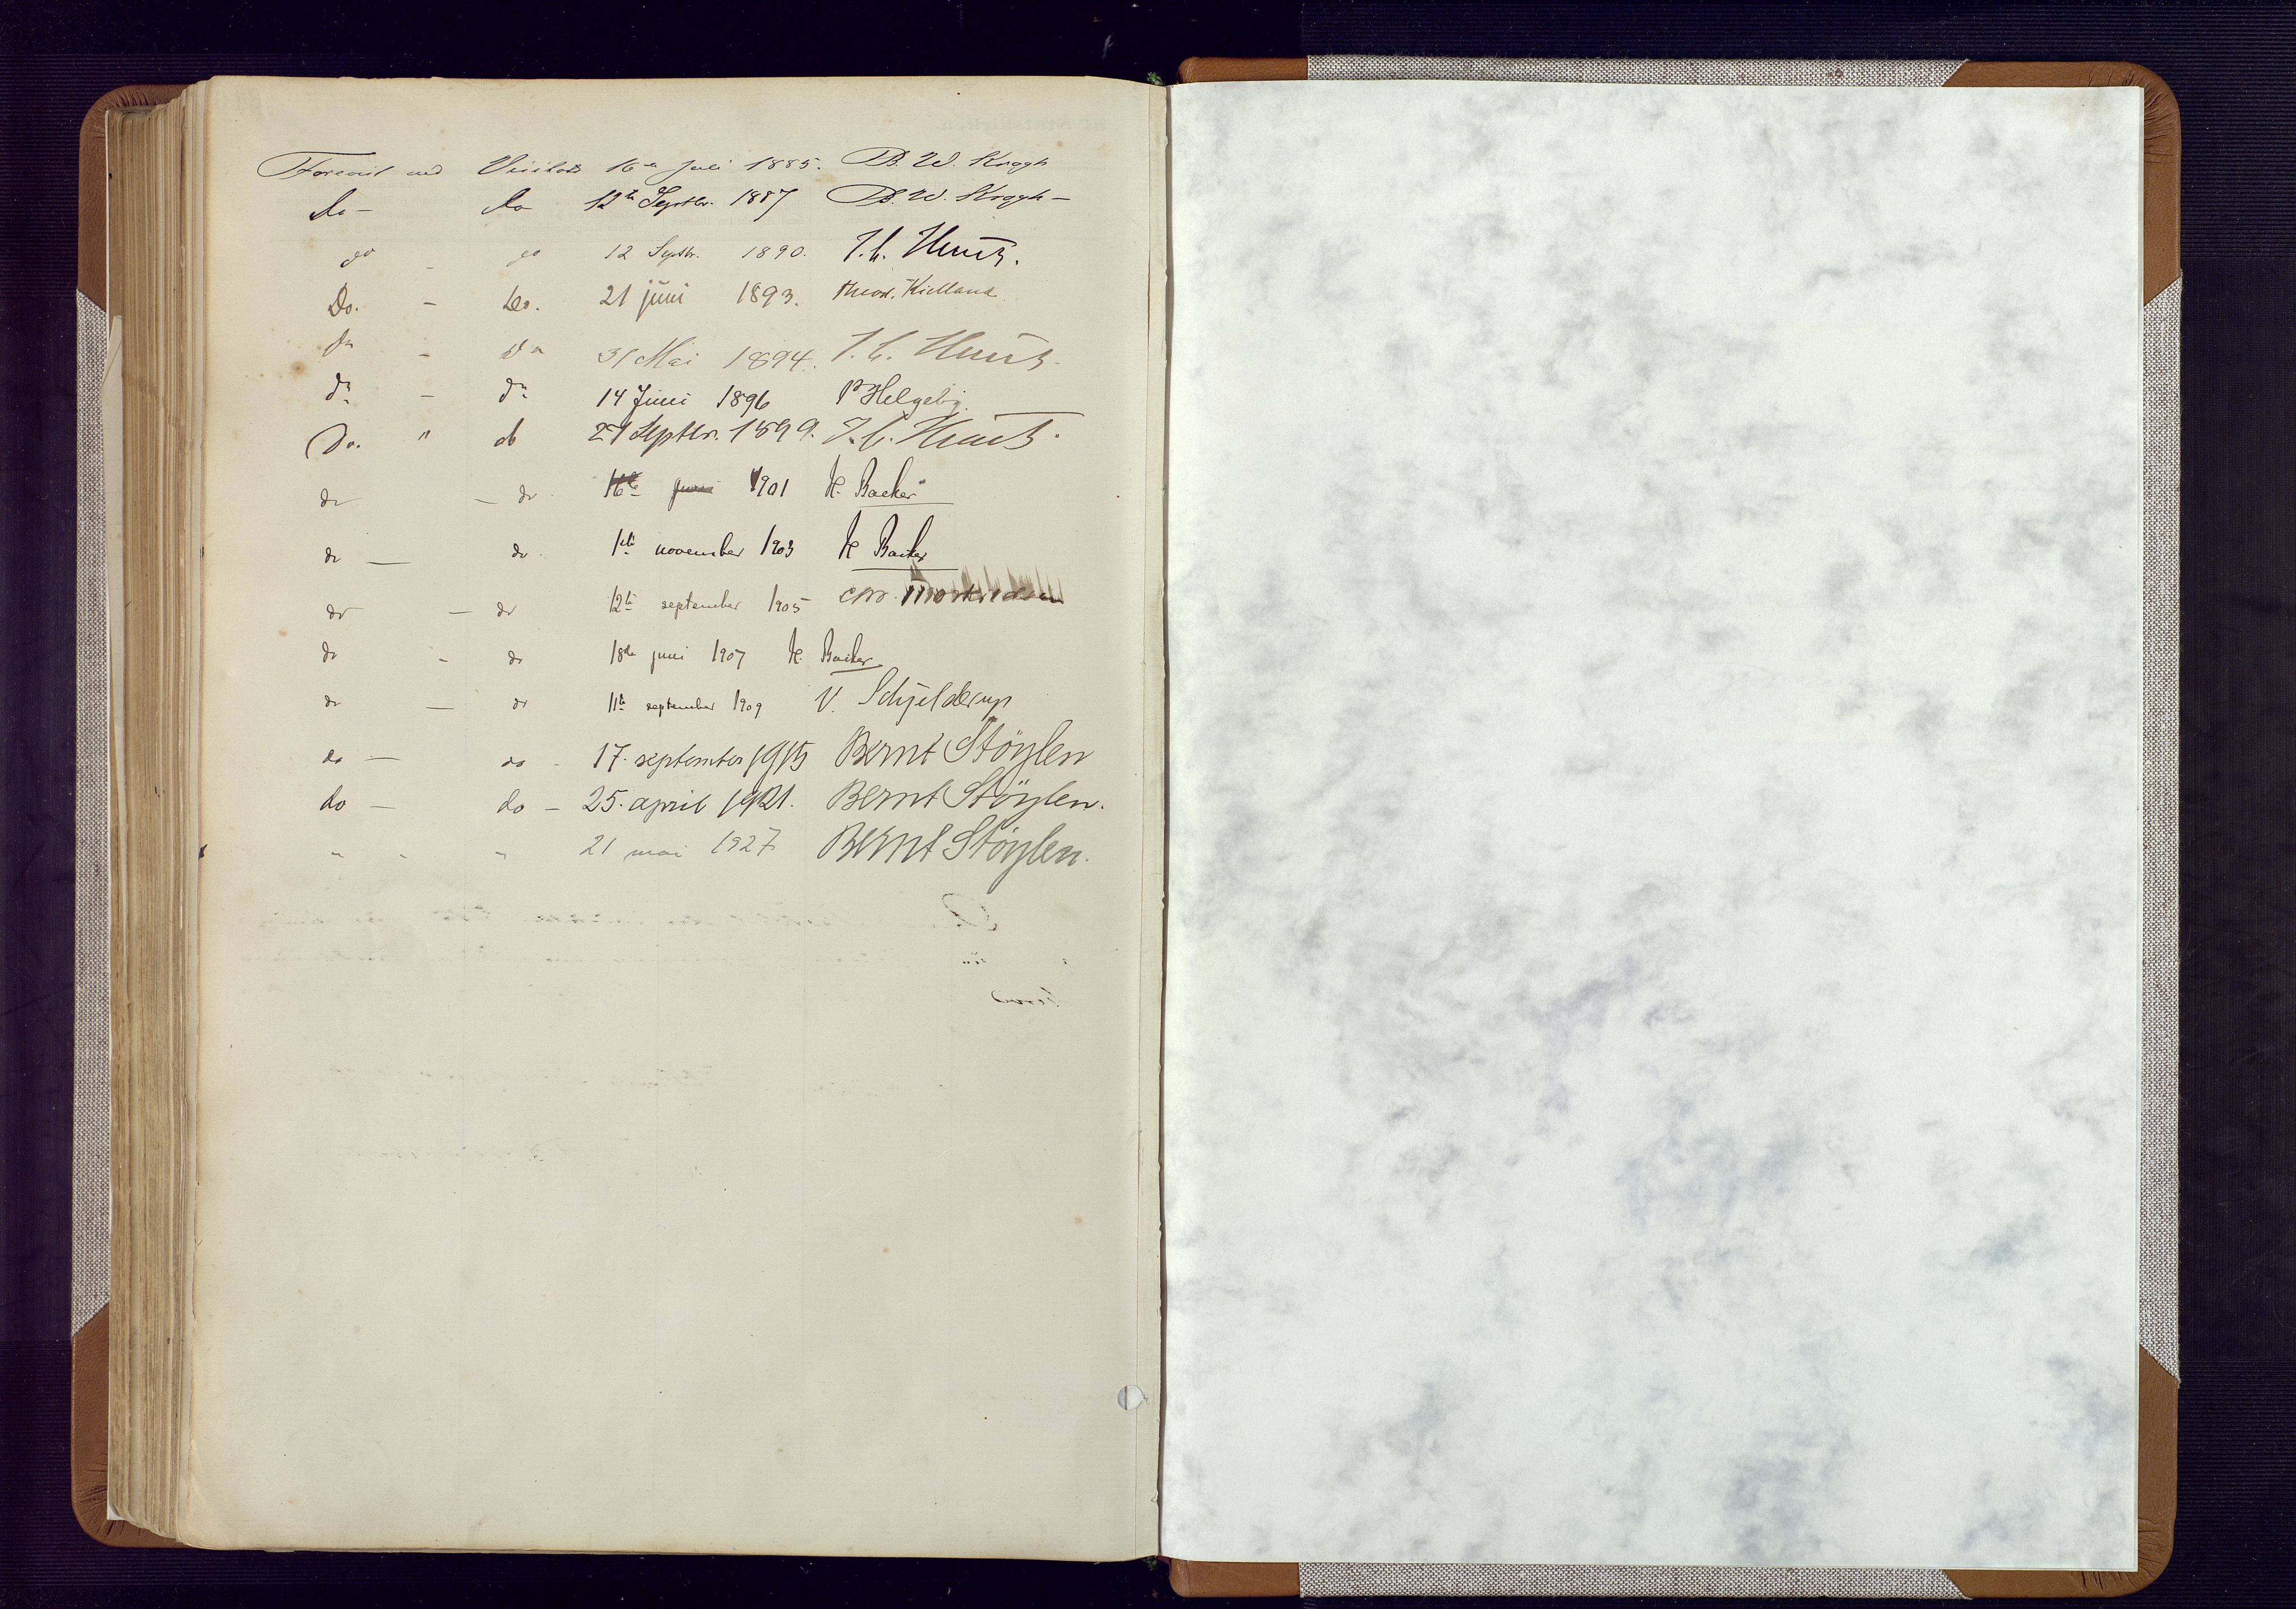 Forevist ved Visitats 16de Juli 1885. B. W. Kragh
Do – Do 12te Septbr. 1887 B. W. Kragh –
do - do 12 Septbr. 1890. J. C. Heuch.
Do. - Do. 21 juni 1893. Theod. Kielland
Do - Do 31 Mai 1894. J. C. Heuch.
do - do 14 Juni 1896 P Helgeby.
Do. " do 21 Septbr. 1899. J. C. Heuch.
do – do. 16de juni 1901 H. Backer
do — do. 1ste november 1903 H Backer
do – do 12te september 1905 Chr.
do - do 18de juni 1907 H. Backer
do — do 11te september 1909 V. Schjelderup
do — do - 17. september 1915 Bernt Støylen
do — do – 25. april 1921. Bernt Støylen.
" - " 21 mai 1927 Bernt Støylen.